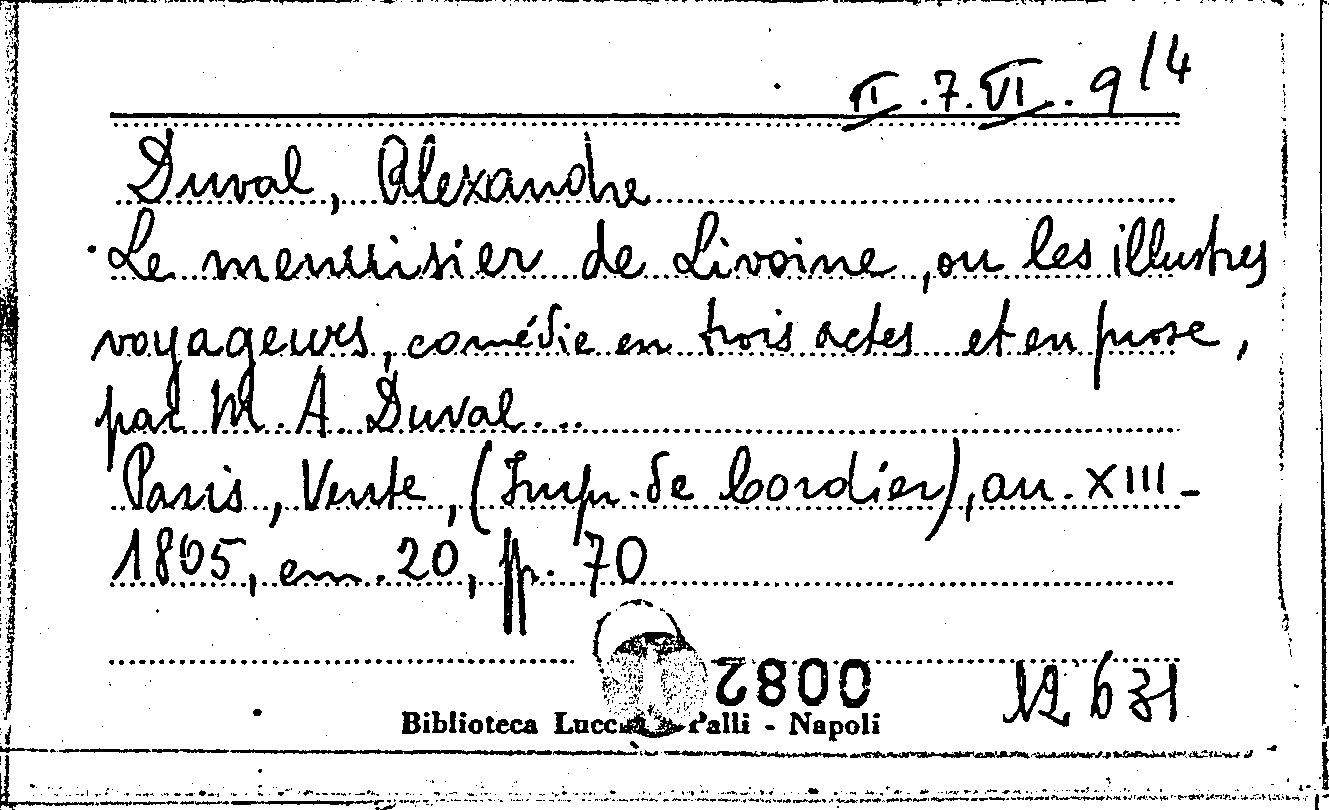 II.7.VI.9/4
Duval, Alexandre
Le menuisier de Livoine, ou les illustres
voyageurs, comédie en trois actes et en prose,
par M. A. Duval...
Paris, Vente, (Imp. de Cordier), an. XIII-
1805, cm. 20, pp. 70
0082
12631
Biblioteca Palli - Napoli